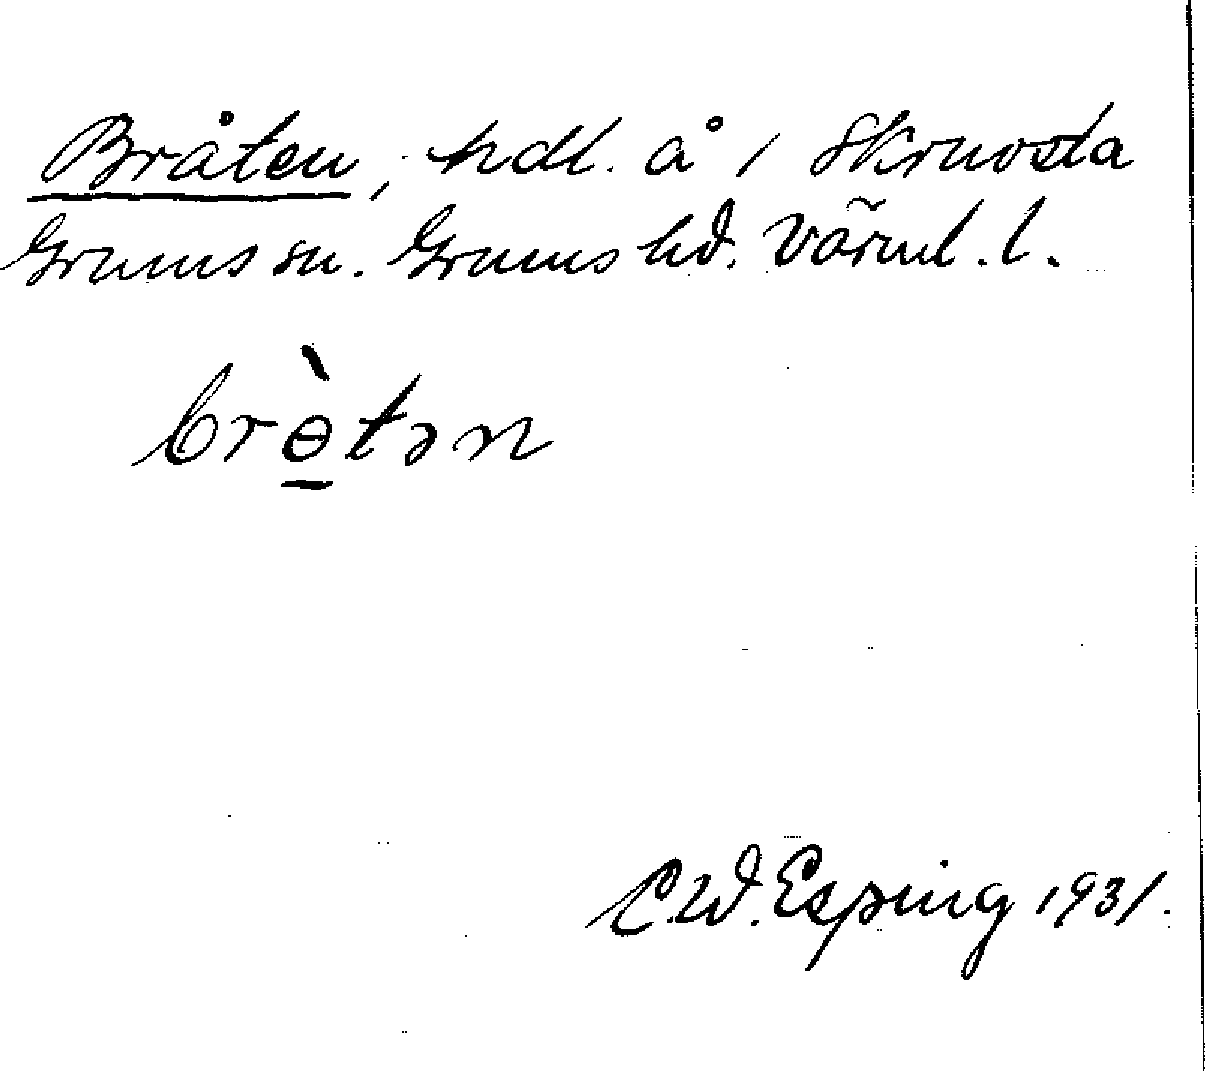 Bråten, hdl. å 1 Skruvsta
Grums sn. Grums hd. Värml. l.
brө̲̀tən
C.W. Esping 1931.